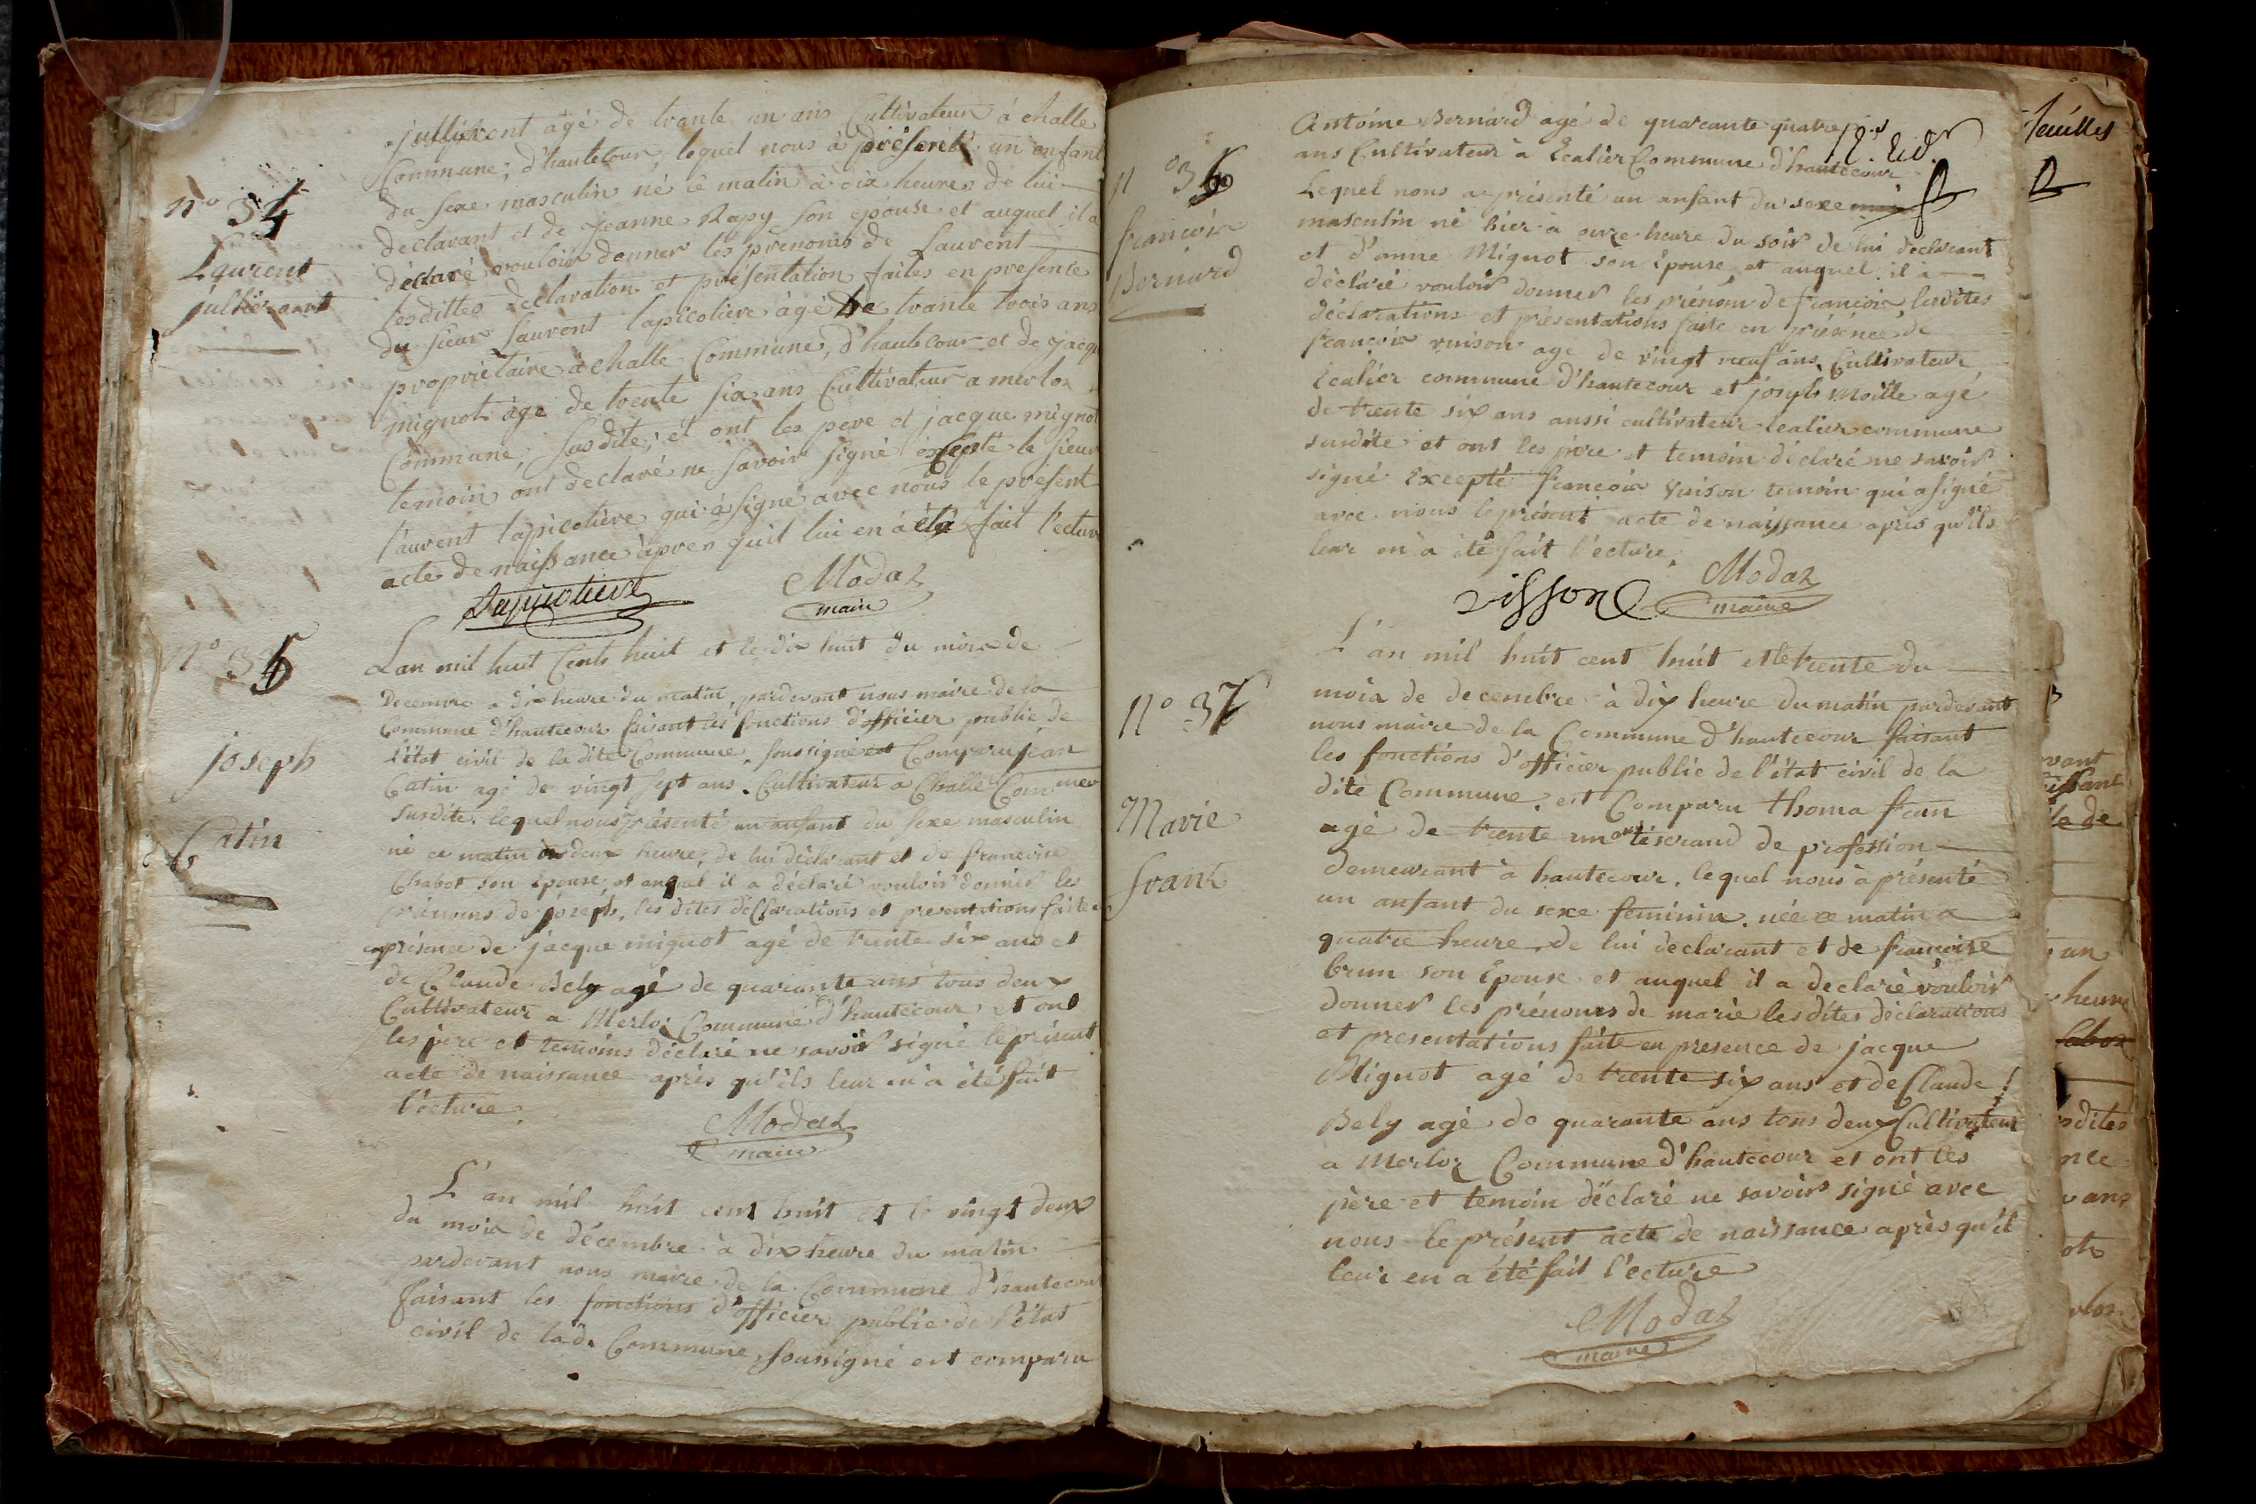 nº 34
Laurent
jullivront
jullivront âgé de trante un ans Cultivateur à challe
Commune, d'hautecour, lequel nous à présenté un enfant
du sexe masculin né ce matin à dix heures de lui
declarant et de jeanne Rapy son epouse et auquel il a
déclaré vouloir donner les prénoms de Laurent
lesdittes declaration et présentation faites en presence
du sieur Laurent lapicotiere âgé de trante trois ans
propriétaire à challe Commune, d'hautecour et de jacque
mignot âgé de trente six ans Cultivateur a merloz
Commune, susdite; et ont les pere et jacque mignot
temoin ont declaré ne savoir signé excepté le sieur
laurent lapicotière qui à signé avec nous le présent
acte de naissance àpres quil lui en à été fait lecture
Lapicotiere
Modaz
maire
nº 35
joseph
Catin
Lan mil huit Cents huit et le dix huit du mois de
Decembre a dix heure du matin, pardevant nous maire de la
Commune d'hautecour faisant les fonctions d'officier public de
l'état civil de la dite Commune, soussigné est Comparu jean
Catin agé de vingt sept ans, Cultivateur a Challe Commune
susdite, lequel nous présenté un anfant du sexe masculin
né ce matin deux heure, de lui déclarant et de francoise
Chabot son épouse et auquel il a déclaré vouloir donner les
prénoms de joseph, les dites déclarations et presentations faite
présence de jacque mignot agé de trente six ans et
de Claude Bely agé de quarante ans tous deux
Cultivateur a Merloz Commune d'hautecour et ont
les père et temoins déclaré ne savoir signé le présent
acte de naissance après qu'ils leur en a été fait
l'ecture.
Modaz
maire
L'an mil huit cent huit et le vingt deux
du mois de décembre à dix heure du matin
pardevant nous maire de la Commune d'hautecour
faisant les fonctions d'officier public de l'état
civil de lad. Commune, soussigné est comparu
nº 36
francois
Bernard
Antoine Bernard agé de quarante quatre
ans Cultivateur a Ecalier Commune d'hautecour
Lequel nous a présenté un anfant du sexe
masculin né hier à onze heure du soir de lui declarant
et d'anne Mignot son épouse, et auquel il a
déclaré vouloir donner les prénom de francois lesdites
déclarations et présentations faite en présence de
francois vuison agé de vingt neuf ans Cultivateur
Ecalier commune d'hautecour et joseph Moille agé
de trente six ans aussi cultivateur ecalier commune
susdite et ont les père et temoin déclaré ne savoir
signé Excepté francois Vuison temoin qui a signé
avec nous le présent acte de naissance après qu'ils
leur en a été fait l'ecture.
visson
Modaz
maire
nº 37
Marie
frank
L'an mil huit cent huit et le trente du
mois de decembre à dix heure du matin pardevant
nous maire de la Commune d'hautecour faisant
les fonctions d'officier public de l'état civil de la
dite Commune, est Comparu thoma fran
agé de trente un ans tiserand de profession
demeurant à hautecour, lequel nous à présenté
un anfant du sexe feminin, née ce matin a
quatre heure, de lui declarant et de francoise
brun son épouse et auquel il a declaré vouloir
donner les prénoms de marie lesdites déclarations
et presentations faite en presence de jacque
Mignot agé de trente six ans et de Claude
Bely agé de quarante ans tous deux Cultivateur
a Merloz Commune d'hautecour et ont les
père et temoin déclaré ne savoir signé avec
nous le présent acte de naissance après qu'il
leur en a été fait l'ecture
Modaz
maire
feuilles